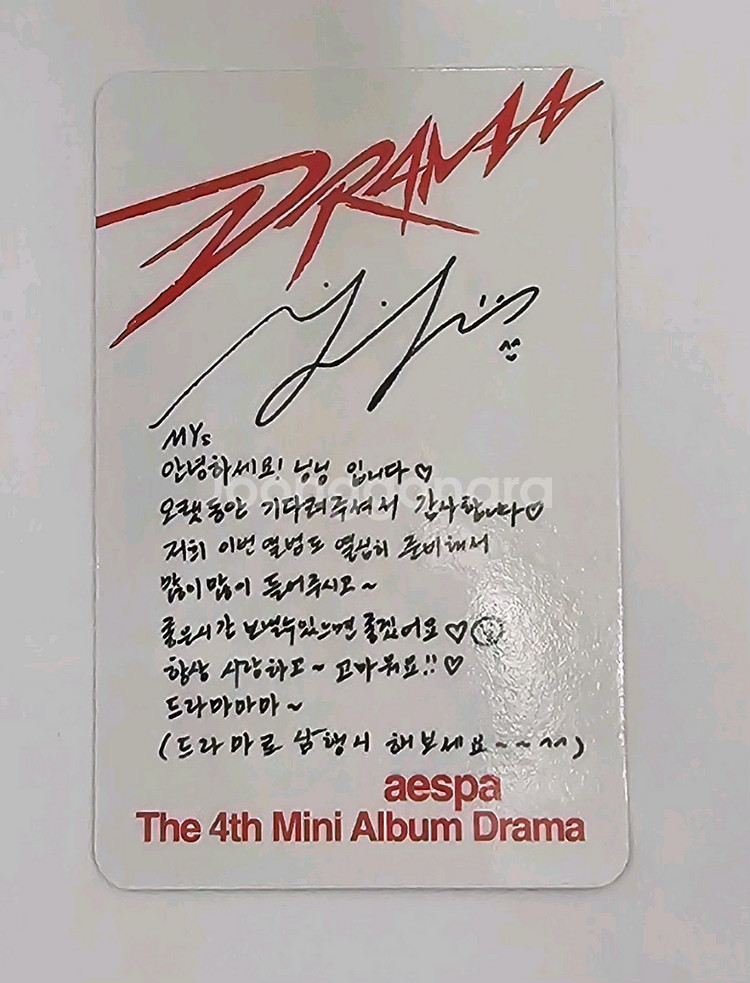 DRAMA
MYs
안녕하세요! 닝닝 입니다♡
오랫동안 기다려주셔서 감사합니다♡
저희 이번 앨범도 열심히 준비해서
많이많이 들어주시고~
좋은시간 보낼수있으면 좋겠어요♡
항상 사랑하고~ 고마워요!!♡
드라마마마~
(드라마로 삼행시 해보세요~~^^)
aespa
The 4th Mini Album Drama
joonggonara